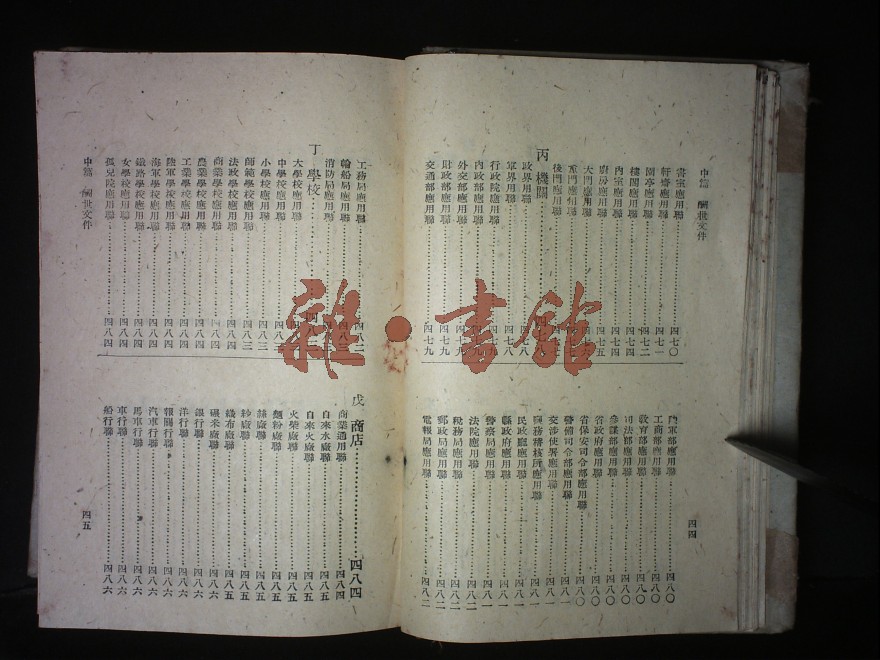 中篇 酬世文件
書室應用聯……四七〇
軒齋應用聯……四七一
園亭應用聯……四七二
樓閣應用聯……四七四
內室應用聯……四七四
廚房應用聯……四七五
大門應用聯
重門應用聯
後門應用聯
丙 機關
政界用聯……四七八
軍界用聯……四七八
行政院應用聯……四七九
內政部應用聯……四七九
外交部應用聯……四七九
財政部應用聯……四七九
交通部應用聯……四七九
陸軍部應用聯……四八〇
工商部應用聯……四八〇
教育部應用聯……四八〇
司法部應用聯……四八〇
參謀部應用聯……四八〇
省政府應用聯……四八〇
省保安司令部應用聯……四八〇
警備司令部應用聯……四八一
交涉使署應用聯……四八一
國務稽核所應用聯……四八一
民政廳應用聯……四八一
縣政府應用聯……四八一
警察局應用聯……四八一
法院應用聯……四八二
稅務局應用聯……四八二
郵政局應用聯……四八二
電報局應用聯……四八二
四四
工務局應用聯……四八二
輪船局應用聯……四八三
消防局應用聯
丁 學校……四八三
大學校應用聯
中學校應用聯……四八三
小學校應用聯……四八三
師範學校應用聯……四八三
法政學校應用聯……四八四
商業學校應用聯……四八四
農業學校應用聯……四八四
工業學校應用聯……四八四
陸軍學校應用聯……四八四
海軍學校應用聯……四八四
鐵路學校應用聯……四八四
女學校應用聯……四八四
孤兒院應用聯……四八四
中篇 酬世文件
戊 商店……四八四
商業通用聯……四八四
自來水廠聯……四八五
自來火廠聯……四八五
火柴廠聯……四八五
麵粉廠聯……四八五
絲廠聯……四八五
紗廠聯……四八五
織布廠聯……四八五
碾米廠聯……四八六
銀行聯……四八六
洋行聯……四八六
報關行聯……四八六
汽車行聯……四八六
馬車行聯……四八六
車行聯……四八六
船行聯……四八六
四五
雜·書館